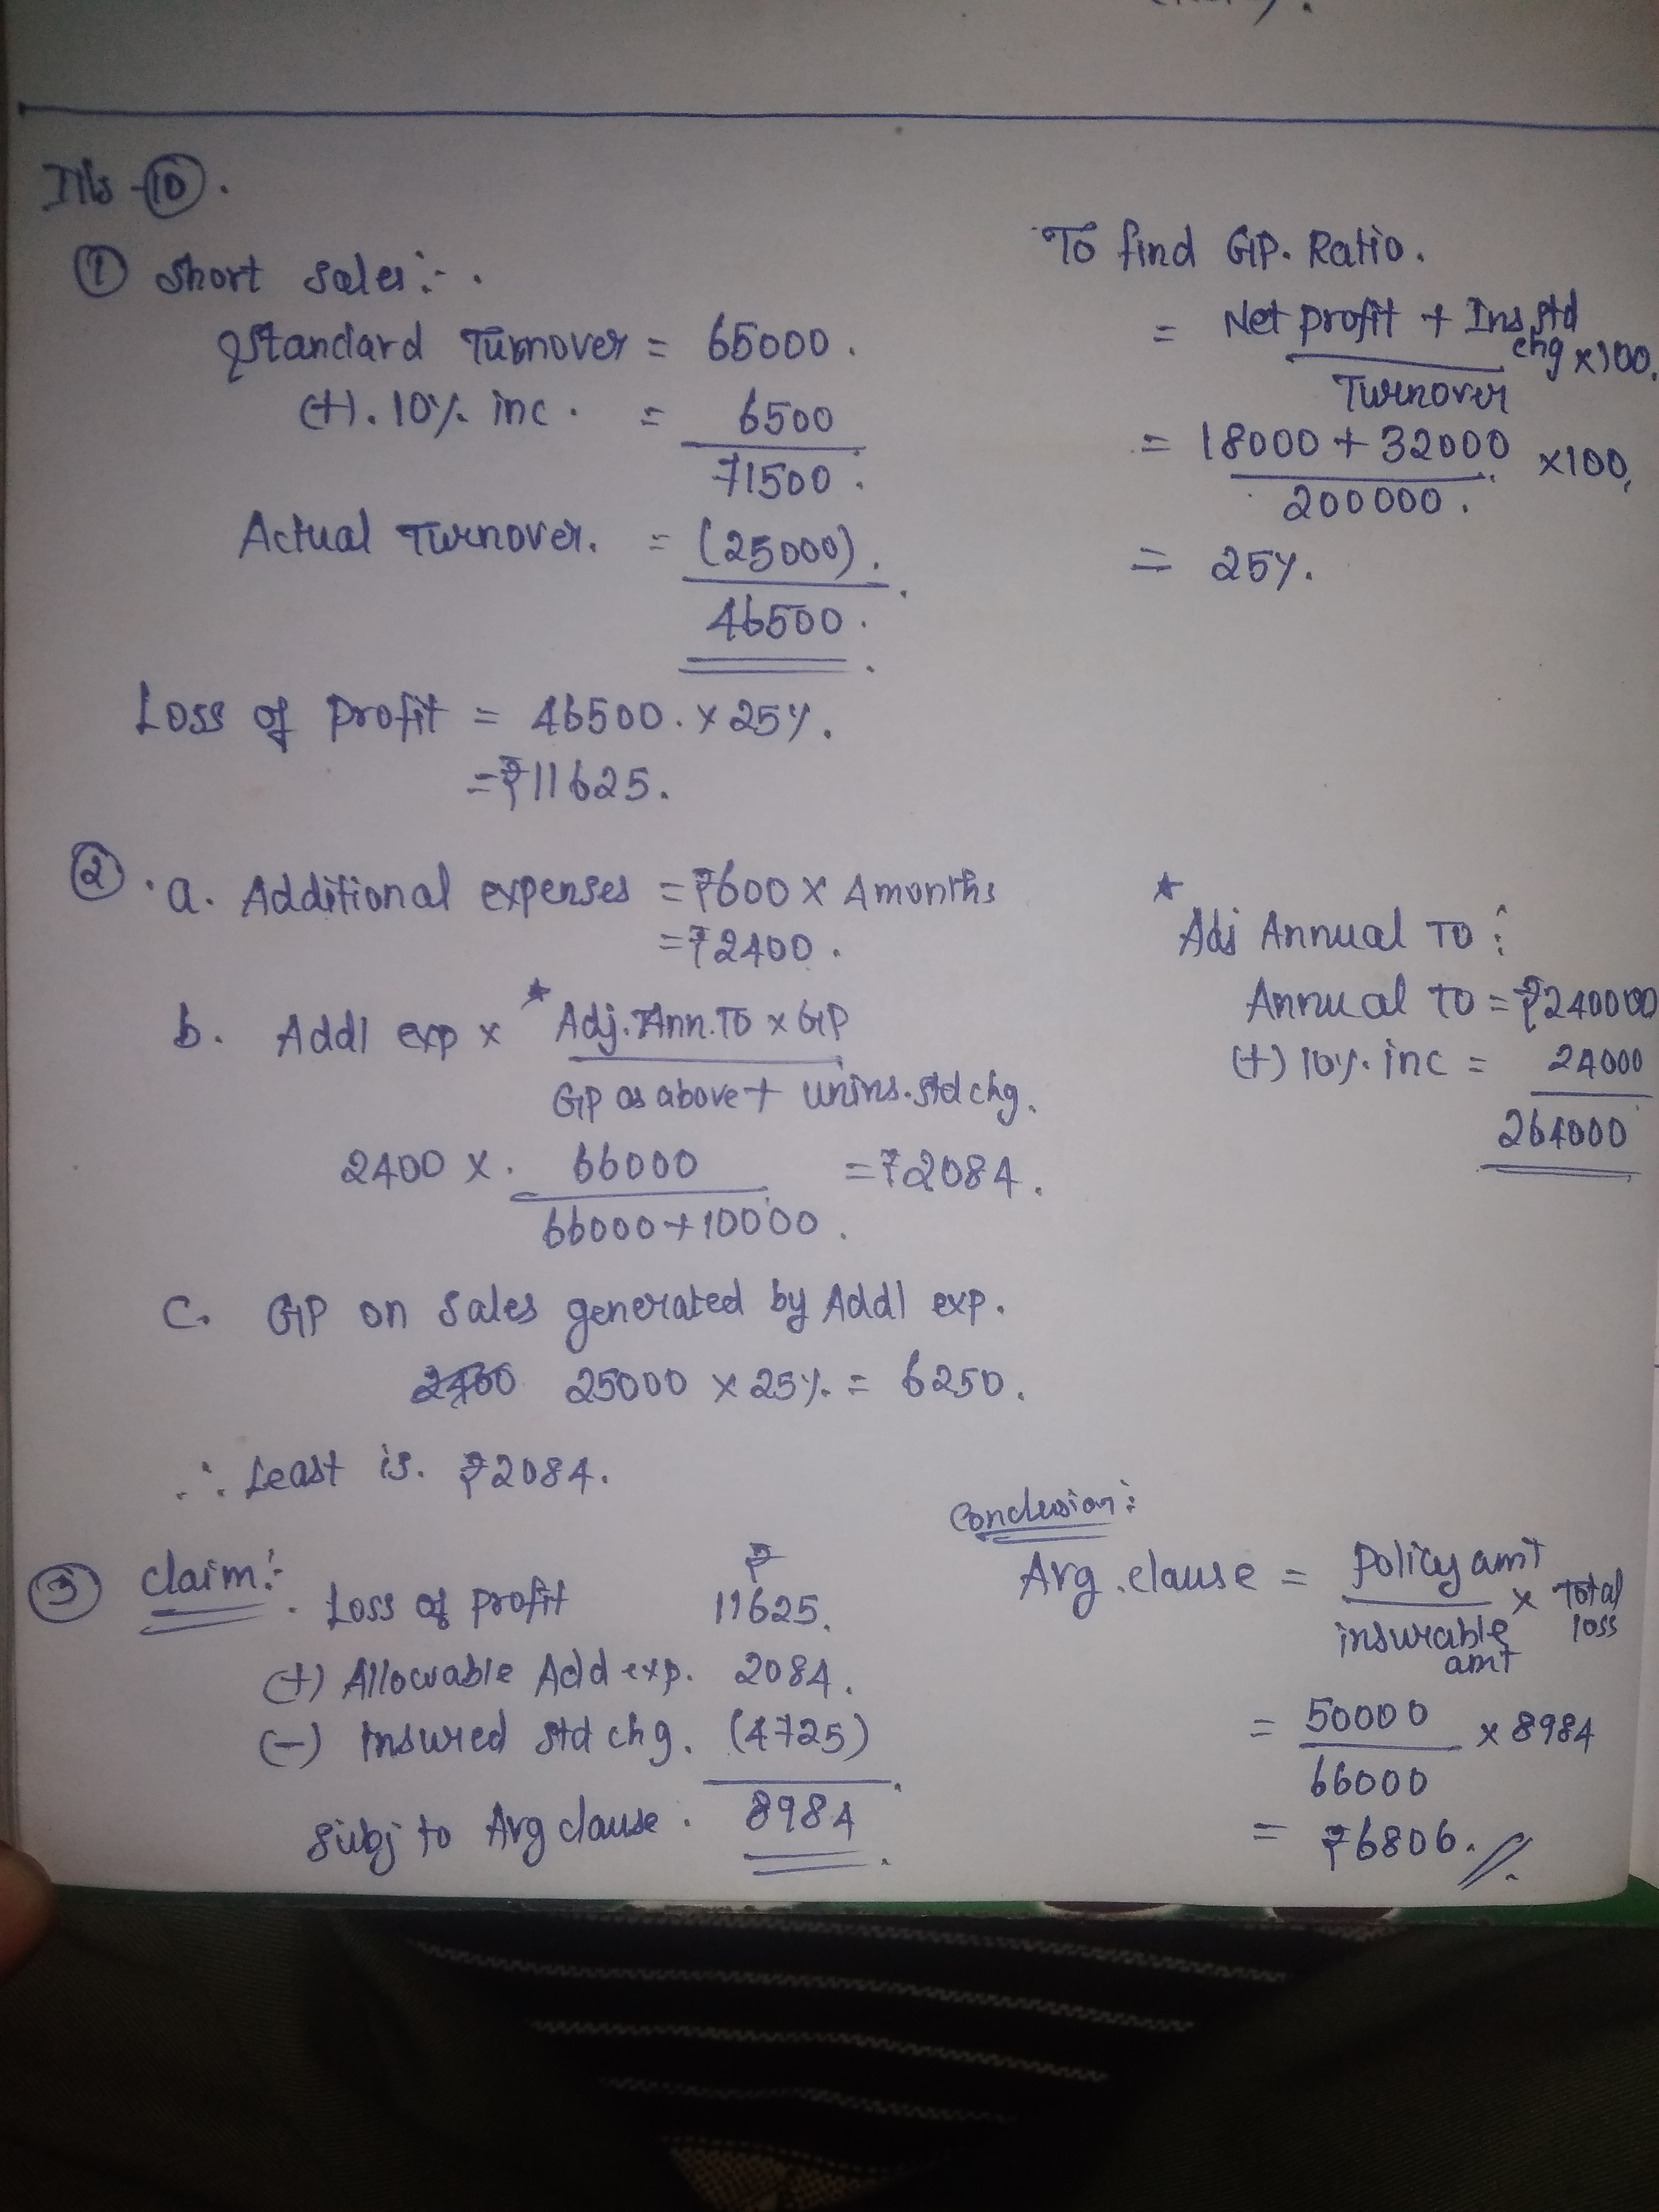 Ills - 10.
① Short Sales:-
Standard Turnover = 65000.
(+). 10% inc. = 6500
71500.
Actual Turnover. = (25000).
46500.
Loss of profit = 46500. × 25%.
= ₹11625.
To find GP. Ratio.
= Net profit + Ins std chg × 100.
Turnover
= 18000 + 32000 × 100,
200000.
= 25%.
② . a. Additional expenses = ₹600 × 4 months
= ₹2400.
b. Addl exp × * Adj. Ann. TO × GP
GP as above + unins. std chg.
2400 × 66000 = ₹2084.
66000 + 10000.
* Adj Annual TO:
Annual TO = ₹240000
(+) 10% inc = 24000
264000
C. GP on Sales generated by Addl exp.
2400 25000 × 25% = 6250.
∴ Least is. ₹2084.
③ Claim:-
₹
Loss of profit 11625.
(+) Allowable Add exp. 2084.
(-) Insured std chg. (4725)
subj to Avg clause. 8984
Conclusion:
Avg. clause = policy amt × Total loss
insurable amt
= 50000 × 8984
66000
= ₹6806.